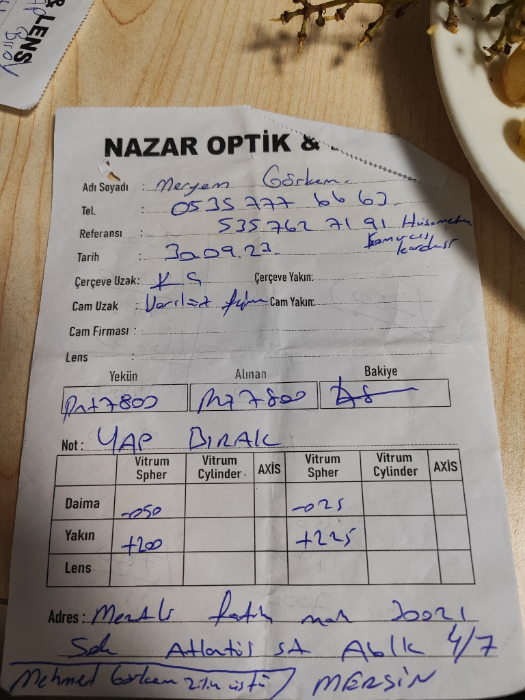 & LENS
NAZAR OPTİK &
Adı Soyadı : Meryem Görkem.
Tel. : 0535 777 66 63
Referansı : 535 762 71 91
kardeşi
Tarih : 30.09.23
Çerçeve Uzak: Çerçeve Yakın:
Cam Uzak : Cam Yakın:
Cam Firması :
Lens :
Yekün Alınan Bakiye
7800 7800
Not : YAP BIRAK
Vitrum Spher Vitrum Cylinder AXİS Vitrum Spher Vitrum Cylinder AXİS
Daima -050 -025
Yakın +200 +225
Lens
Adres : fatih mah 30021
Sok Atlantis st A blk 4/7
Mehmed Görkem zilin üstü MERSİN